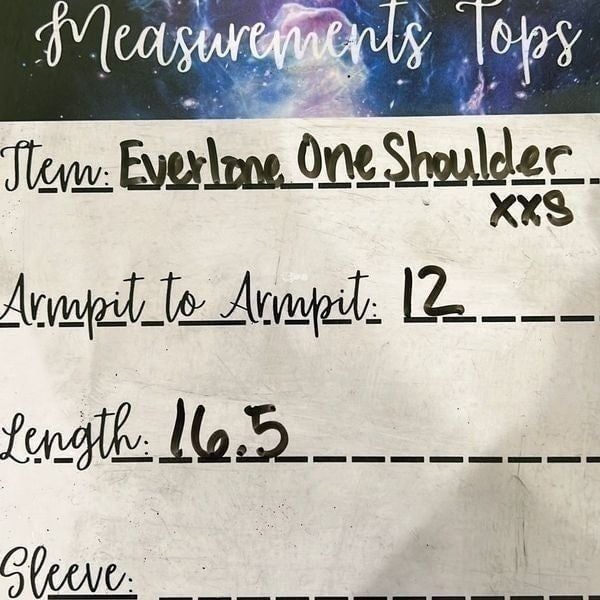 Measurements Tops
Item: Everlane One Shoulder
XXS
Armpit to Armpit: 12
Length: 16.5
Sleeve: